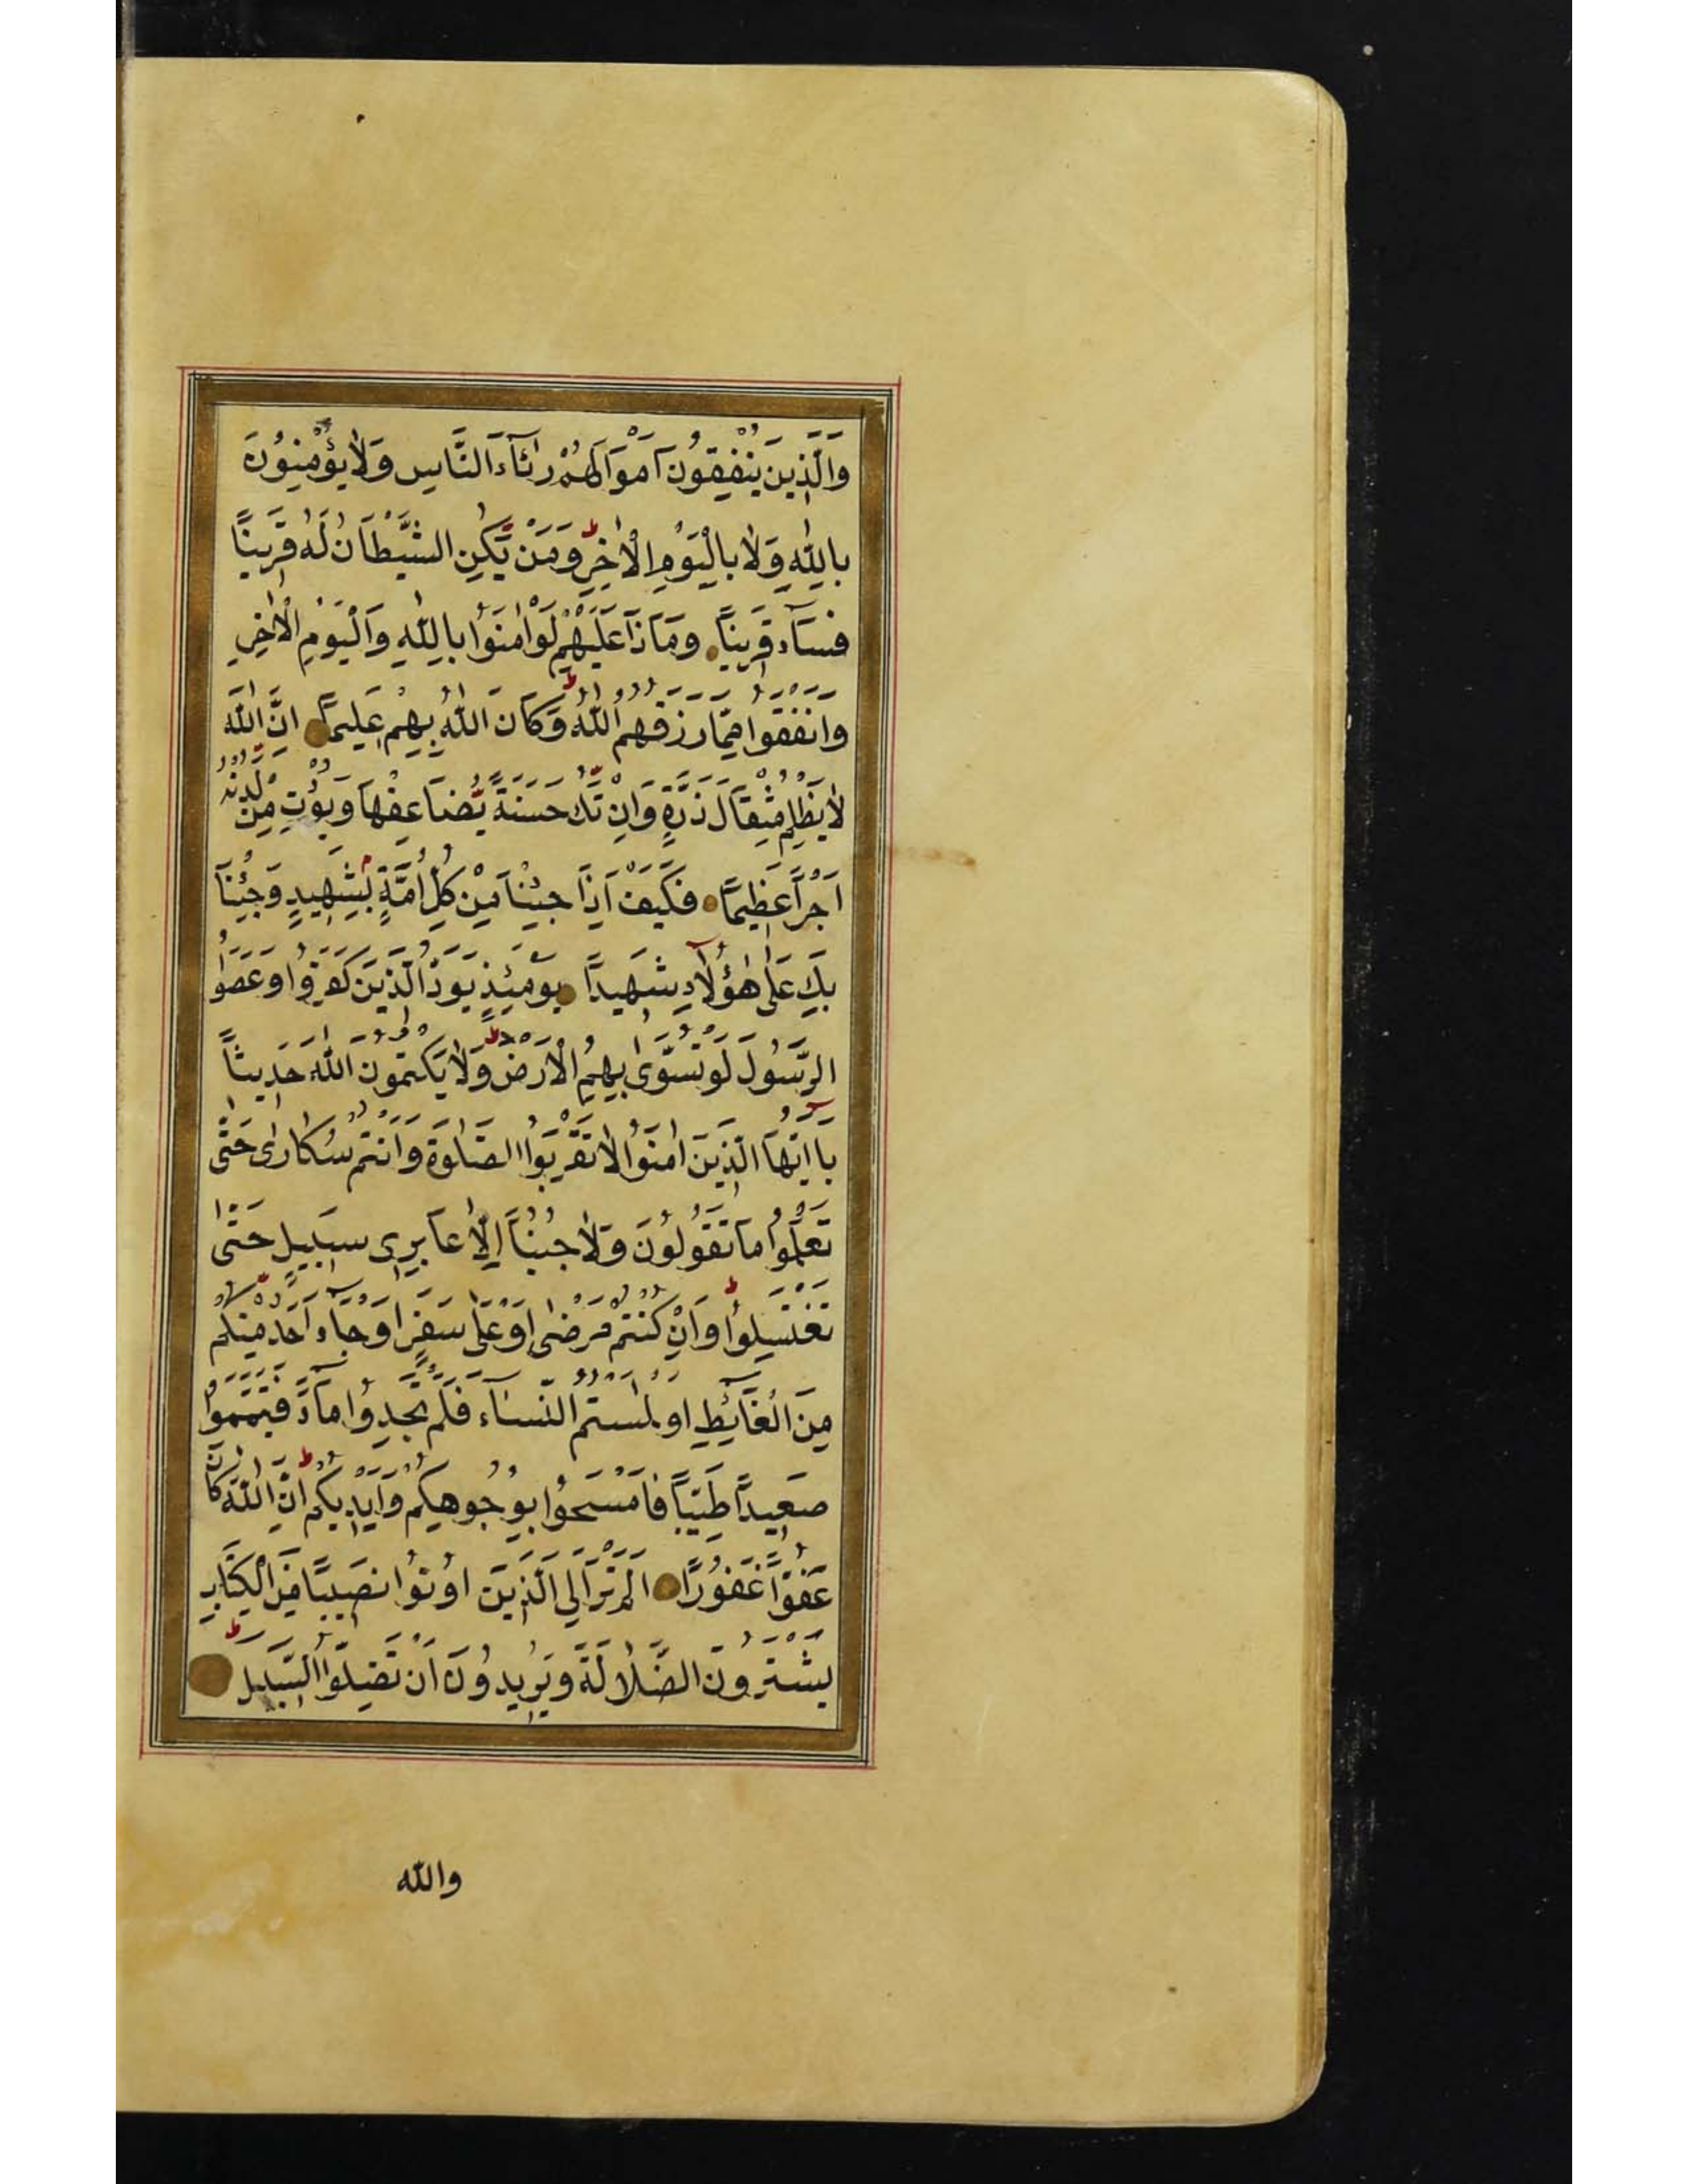 وَالَّذِينَ يُنْفِقُونَ اَمْوَالَهُمْ رِئَآءَ النَّاسِ وَلَا يُؤْمِنُونَ
بِاللّٰهِ وَلَا بِالْيَوْمِ الْاٰخِرِ وَمَنْ يَّكُنِ الشَّيْطَانُ لَهُ قَرِينًا
فَسَآءَ قَرِينًا وَمَاذَا عَلَيْهِمْ لَوْ اٰمَنُوا بِاللّٰهِ وَالْيَوْمِ الْاٰخِرِ
وَاَنْفَقُوا مِمَّا رَزَقَهُمُ اللّٰهُ وَكَانَ اللّٰهُ بِهِمْ عَلِيمًا اِنَّ اللّٰهَ
لَا يَظْلِمُ مِثْقَالَ ذَرَّةٍ وَاِنْ تَكُ حَسَنَةً يُضَاعِفْهَا وَيُؤْتِ مِنْ لَّدُنْهُ
اَجْرًا عَظِيمًا فَكَيْفَ اِذَا جِئْنَا مِنْ كُلِّ اُمَّةٍ بِشَهِيدٍ وَجِئْنَا
بِكَ عَلٰى هٰؤُلَآءِ شَهِيدًا يَوْمَئِذٍ يَوَدُّ الَّذِينَ كَفَرُوا وَعَصَوُا
الرَّسُولَ لَوْ تُسَوّٰى بِهِمُ الْاَرْضُ وَلَا يَكْتُمُونَ اللّٰهَ حَدِيثًا
يَآ اَيُّهَا الَّذِينَ اٰمَنُوا لَا تَقْرَبُوا الصَّلٰوةَ وَاَنْتُمْ سُكَارٰى حَتّٰى
تَعْلَمُوا مَا تَقُولُونَ وَلَا جُنُبًا اِلَّا عَابِرِى سَبِيلٍ حَتّٰى
تَغْتَسِلُوا وَاِنْ كُنْتُمْ مَرْضٰى اَوْ عَلٰى سَفَرٍ اَوْ جَآءَ اَحَدٌ مِنْكُمْ
مِنَ الْغَآئِطِ اَوْ لٰمَسْتُمُ النِّسَآءَ فَلَمْ تَجِدُوا مَآءً فَتَيَمَّمُوا
صَعِيدًا طَيِّبًا فَامْسَحُوا بِوُجُوهِكُمْ وَاَيْدِيكُمْ اِنَّ اللّٰهَ كَانَ
عَفُوًّا غَفُورًا اَلَمْ تَرَ اِلَى الَّذِينَ اُوتُوا نَصِيبًا مِنَ الْكِتَابِ
يَشْتَرُونَ الضَّلَالَةَ وَيُرِيدُونَ اَنْ تَضِلُّوا السَّبِيلَ
والله